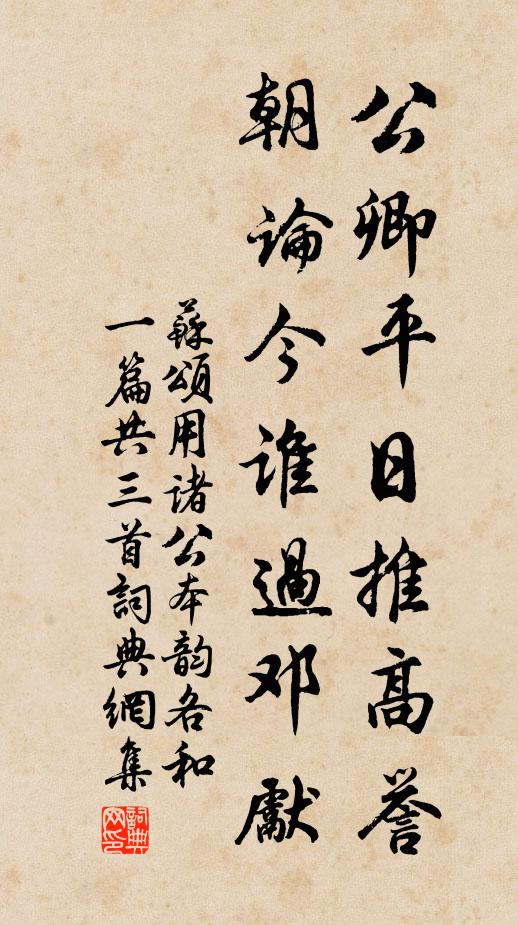 公卿平日推高誉
朝論今誰過邓獻
蘇頌用诸公本韵各和
一篇共三首詞典網集
詞典网印